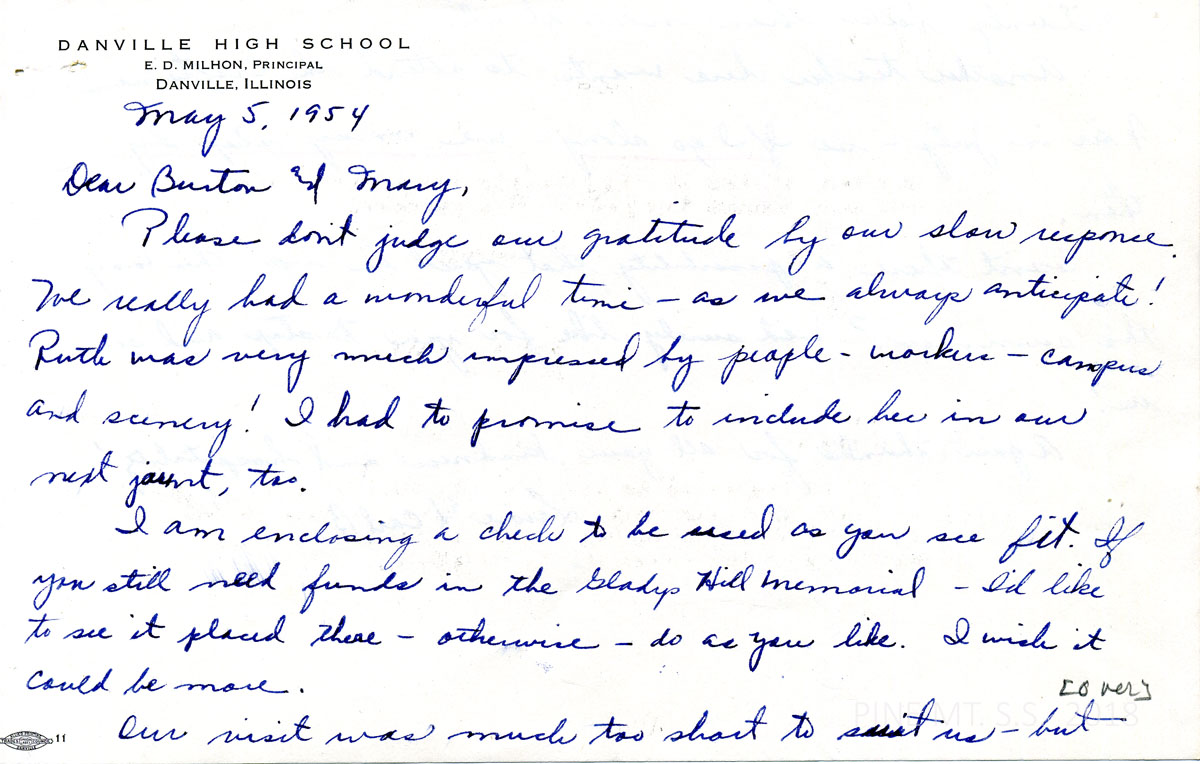 DANVILLE HIGH SCHOOL
E. D. MILHON, PRINCIPAL
DANVILLE, ILLINOIS
May 5, 1954
Dear Burton and Mary,
Please don't judge our gratitude by our slow response.
We really had a wonderful time - as we always anticipate!
Ruth was very much impressed by people - workers - campus
and scenery! I had to promise to include her in our
next jaunt, too.
I am enclosing a check to be used as you see fit. If
you still need funds in the Gladys Hill Memorial - I'd like
to see it placed there - otherwise - do as you like. I wish it
could be more.
[over]
Our visit was much too short to suit us - but
PINE MT. S.S. 2018
11